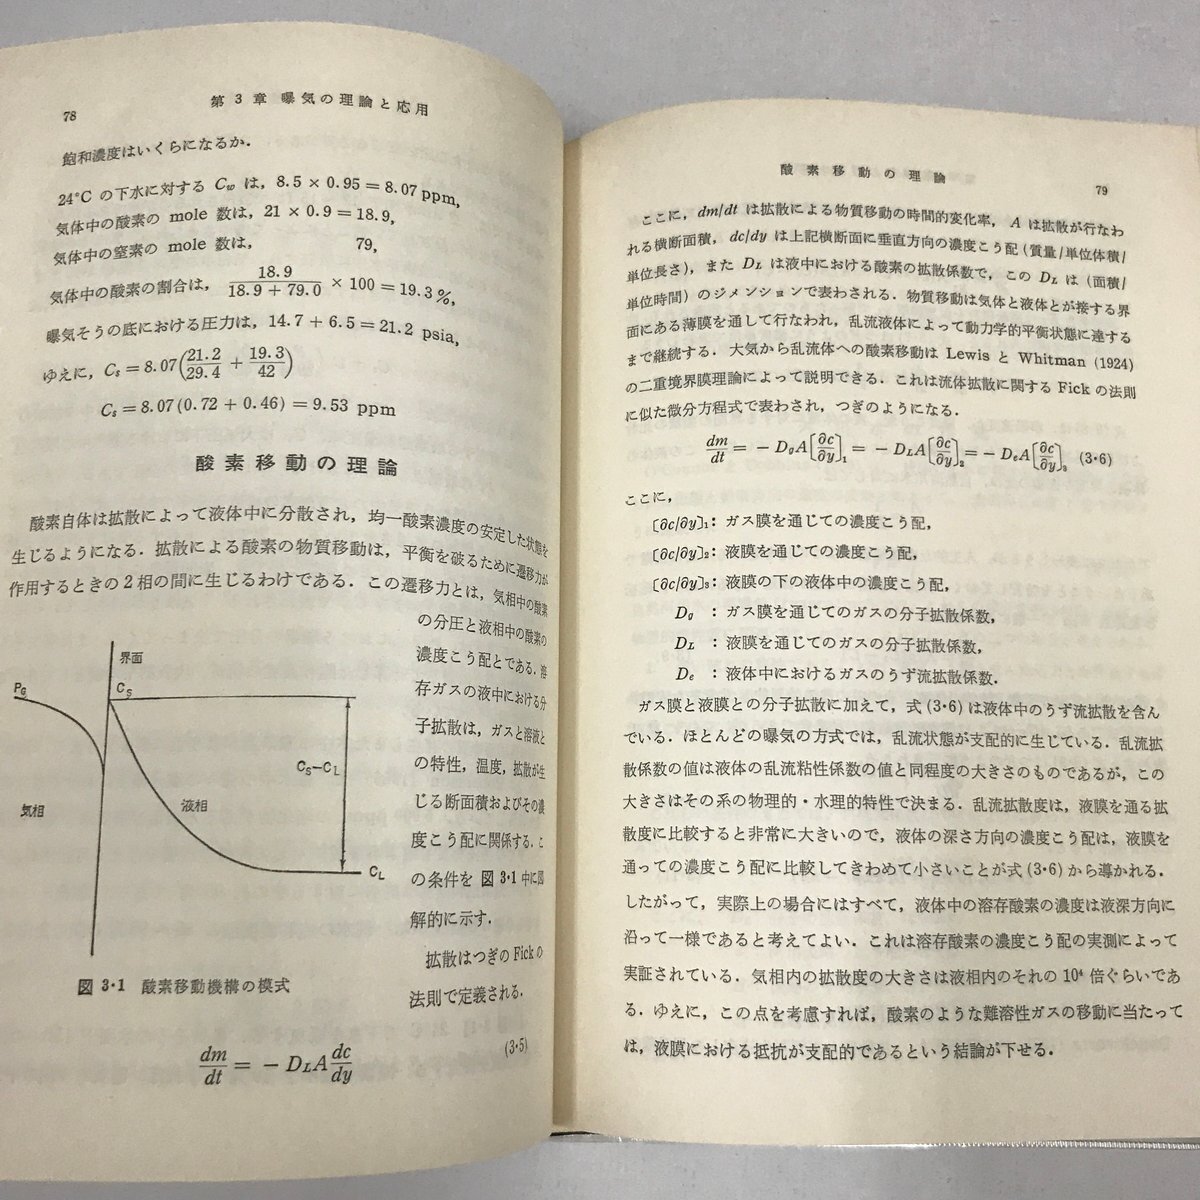 78
第3章 曝気の理論と応用
飽和濃度はいくらになるか．
24°C の下水に対する Cw は，8.5 × 0.95 = 8.07 ppm,
気体中の酸素の mole 数は，21 × 0.9 = 18.9,
気体中の窒素の mole 数は， 79,
気体中の酸素の割合は， 18.9/(18.9 + 79.0) × 100 = 19.3 %,
曝気そうの底における圧力は，14.7 + 6.5 = 21.2 psia,
ゆえに，Cs = 8.07(21.2/29.4 + 19.3/42)
Cs = 8.07 (0.72 + 0.46) = 9.53 ppm
酸素移動の理論
酸素自体は拡散によって液体中に分散され，均一酸素濃度の安定した状態を
生じるようになる．拡散による酸素の物質移動は，平衡を破るために遷移力が
作用するときの2相の間に生じるわけである．この遷移力とは，気相中の酸素
の分圧と液相中の酸素の
濃度こう配とである．溶
存ガスの液中における分
子拡散は，ガスと溶液と
の特性，温度，拡散が生
じる断面積およびその濃
度こう配に関係する．こ
の条件を 図 3・1 中に図
解的に示す．
拡散はつぎの Fick の
法則で定義される．
界面
PG
CS
CS−CL
気相
液相
CL
図 3・1 酸素移動機構の模式
dm/dt = − DLA dc/dy
(3・5)
酸素移動の理論
79
ここに，dm/dt は拡散による物質移動の時間的変化率，A は拡散が行なわ
れる横断面積，dc/dy は上記横断面に垂直方向の濃度こう配 (質量/単位体積/
単位長さ)，また DL は液中における酸素の拡散係数で，この DL は (面積/
単位時間) のジメンションで表わされる．物質移動は気体と液体とが接する界
面にある薄膜を通して行なわれ，乱流液体によって動力学的平衡状態に達する
まで継続する．大気から乱流体への酸素移動は Lewis と Whitman (1924)
の二重境界膜理論によって説明できる．これは流体拡散に関する Fick の法則
に似た微分方程式で表わされ，つぎのようになる．
dm/dt = − DgA[∂c/∂y]1 = − DLA[∂c/∂y]2 = − DeA[∂c/∂y]3 (3・6)
ここに，
[∂c/∂y]1：ガス膜を通じての濃度こう配，
[∂c/∂y]2：液膜を通じての濃度こう配，
[∂c/∂y]3：液膜の下の液体中の濃度こう配，
Dg ：ガス膜を通じてのガスの分子拡散係数，
DL ：液膜を通じてのガスの分子拡散係数，
De ：液体中におけるガスのうず流拡散係数．
ガス膜と液膜との分子拡散に加えて，式 (3・6) は液体中のうず流拡散を含ん
でいる．ほとんどの曝気の方式では，乱流状態が支配的に生じている．乱流拡
散係数の値は液体の乱流粘性係数の値と同程度の大きさのものであるが，この
大きさはその系の物理的・水理的特性で決まる．乱流拡散度は，液膜を通る拡
散度に比較すると非常に大きいので，液体の深さ方向の濃度こう配は，液膜を
通っての濃度こう配に比較してきわめて小さいことが式 (3・6) から導かれる．
したがって，実際上の場合にはすべて，液体中の溶存酸素の濃度は液深方向に
沿って一様であると考えてよい．これは溶存酸素の濃度こう配の実測によって
実証されている．気相内の拡散度の大きさは液相内のそれの 10⁴ 倍ぐらいであ
る．ゆえに，この点を考慮すれば，酸素のような難溶性ガスの移動に当たって
は，液膜における抵抗が支配的であるという結論が下せる．